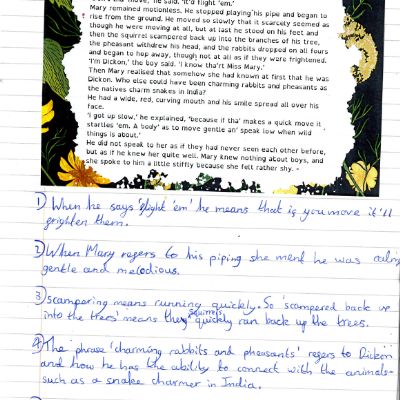 move,' he said. 'It'd flight 'em.'
Mary remained motionless. He stopped playing his pipe and began to
rise from the ground. He moved so slowly that it scarcely seemed as
though he were moving at all, but at last he stood on his feet and
then the squirrel scampered back up into the branches of his tree,
the pheasant withdrew his head, and the rabbits dropped on all fours
and began to hop away, though not at all as if they were frightened.
'I'm Dickon,' the boy said. 'I know tha'rt Miss Mary.'
Then Mary realised that somehow she had known at first that he was
Dickon. Who else could have been charming rabbits and pheasants as
the natives charm snakes in India?
He had a wide, red, curving mouth and his smile spread all over his
face.
'I got up slow,' he explained, 'because if tha' makes a quick move it
startles 'em. A body' as to move gentle an' speak low when wild
things is about.'
He did not speak to her as if they had never seen each other before,
but as if he knew her quite well. Mary knew nothing about boys, and
she spoke to him a little stiffly because she felt rather shy.
1) When he says 'flight 'em' he means that if you move it'll
frighten them.
2) When Mary refers to his piping she ment he was
gentle and melodious.
3) scampering means running quickly. So 'scampered back up
into the trees' means the squirrels quickly ran back up the trees.
4) The phrase 'charming rabbits and pheasants' refers to Dickon
and how he has the ability to connect with the animals-
such as a snake charmer in India.